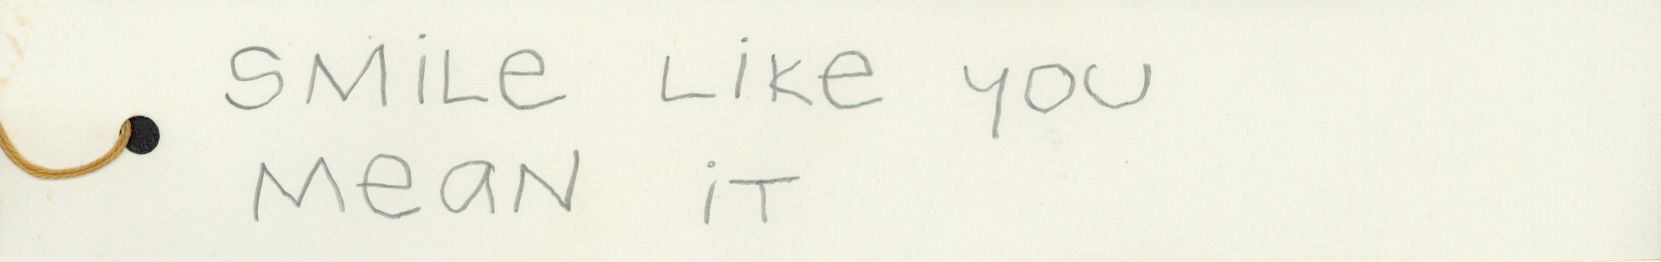 SMiLe LiKe you
MeaN iT